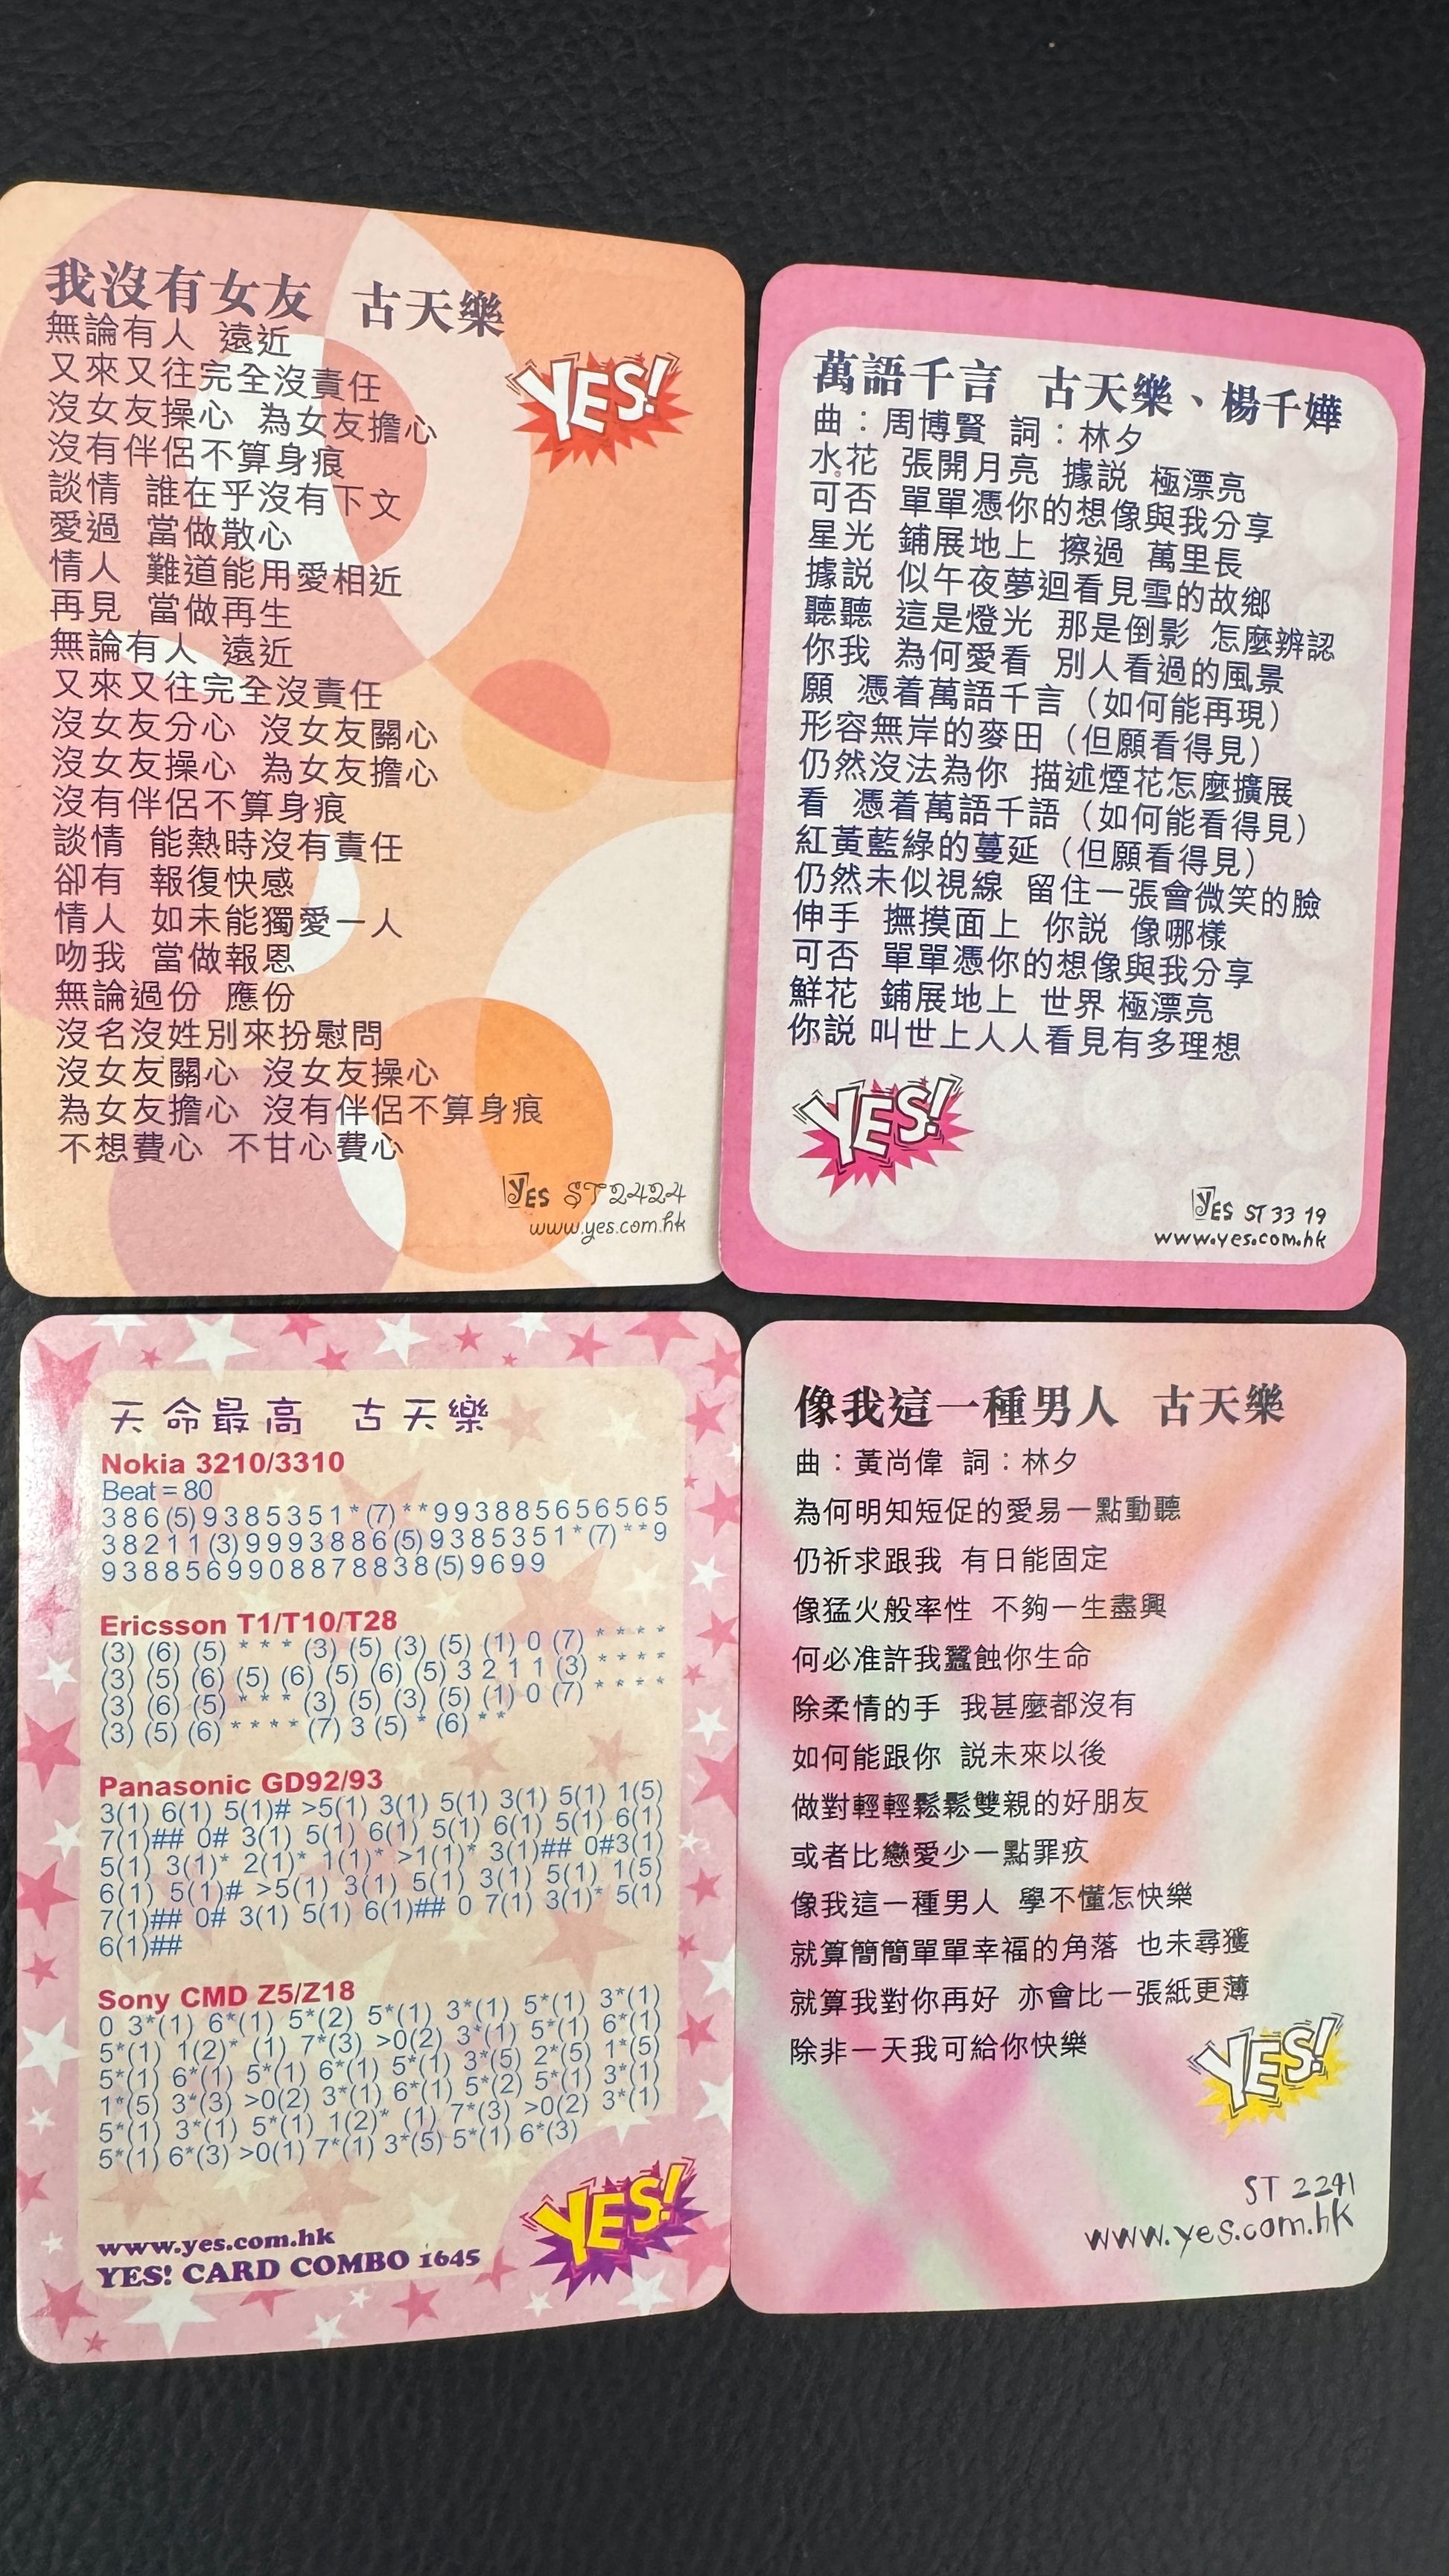 我沒有女友 古天樂
無論有人 遠近
又來又往完全沒責任
沒女友操心 為女友擔心
沒有伴侶不算身痕
談情 誰在乎沒有下文
愛過 當做散心
情人 難道能用愛相近
再見 當做再生
無論有人 遠近
又來又往完全沒責任
沒女友分心 沒女友關心
沒女友操心 為女友擔心
沒有伴侶不算身痕
談情 能熱時沒有責任
卻有 報復快感
情人 如未能獨愛一人
吻我 當做報恩
無論過份 應份
沒名沒姓別來扮慰問
沒女友關心 沒女友操心
為女友擔心 沒有伴侶不算身痕
不想費心 不甘心費心
YES!
YES ST2424
www.yes.com.hk
萬語千言 古天樂、楊千嬅
曲：周博賢 詞：林夕
水花 張開月亮 據説 極漂亮
可否 單單憑你的想像與我分享
星光 鋪展地上 擦過 萬里長
據説 似午夜夢迴看見雪的故鄉
聽聽 這是燈光 那是倒影 怎麼辨認
你我 為何愛看 別人看過的風景
願 憑着萬語千言（如何能再現）
形容無岸的麥田（但願看得見）
仍然沒法為你 描述煙花怎麼擴展
看 憑着萬語千語（如何能看得見）
紅黃藍綠的蔓延（但願看得見）
仍然未似視線 留住一張會微笑的臉
伸手 撫摸面上 你説 像哪樣
可否 單單憑你的想像與我分享
鮮花 鋪展地上 世界 極漂亮
你説 叫世上人人看見有多理想
YES!
YES ST 33 19
www.yes.com.hk
天命最高 古天樂
Nokia 3210/3310
Beat = 80
3 8 6 (5) 9 3 8 5 3 5 1 * (7) * * 9 9 3 8 8 5 6 5 6 5 6 5
3 8 2 1 1 (3) 9 9 9 3 8 8 6 (5) 9 3 8 5 3 5 1 * (7) * * 9
9 3 8 8 5 6 9 9 0 8 8 7 8 8 3 8 (5) 9 6 9 9
Ericsson T1/T10/T28
(3) (6) (5) * * * (3) (5) (3) (5) (1) 0 (7) * * * *
(3) (5) (6) (5) (6) (5) (6) (5) 3 2 1 1 (3) * * * *
(3) (6) (5) * * * (3) (5) (3) (5) (1) 0 (7) * * * *
(3) (5) (6) * * * * (7) 3 (5) * (6) * *
Panasonic GD92/93
3(1) 6(1) 5(1)# >5(1) 3(1) 5(1) 3(1) 5(1) 1(5)
7(1)## 0# 3(1) 5(1) 6(1) 5(1) 6(1) 5(1) 6(1)
5(1) 3(1)* 2(1)* 1(1)* >1(1)* 3(1)## 0#3(1)
6(1) 5(1)# >5(1) 3(1) 5(1) 3(1) 5(1) 1(5)
7(1)## 0# 3(1) 5(1) 6(1)## 0 7(1) 3(1)* 5(1)
6(1)##
Sony CMD Z5/Z18
0 3*(1) 6*(1) 5*(2) 5*(1) 3*(1) 5*(1) 3*(1)
5*(1) 1(2)* (1) 7*(3) >0(2) 3*(1) 5*(1) 6*(1)
5*(1) 6*(1) 5*(1) 6*(1) 5*(1) 3*(5) 2*(5) 1*(5)
1*(5) 3*(3) >0(2) 3*(1) 6*(1) 5*(2) 5*(1) 3*(1)
5*(1) 3*(1) 5*(1) 1(2)* (1) 7*(3) >0(2) 3*(1)
5*(1) 6*(3) >0(1) 7*(1) 3*(5) 5*(1) 6*(3)
www.yes.com.hk
YES! CARD COMBO 1645
YES!
像我這一種男人 古天樂
曲：黃尚偉 詞：林夕
為何明知短促的愛易一點動聽
仍祈求跟我 有日能固定
像猛火般率性 不夠一生盡興
何必准許我蠶蝕你生命
除柔情的手 我甚麼都沒有
如何能跟你 說未來以後
做對輕輕鬆鬆雙親的好朋友
或者比戀愛少一點罪疚
像我這一種男人 學不懂怎快樂
就算簡簡單單幸福的角落 也未尋獲
就算我對你再好 亦會比一張紙更薄
除非一天我可給你快樂
YES!
ST 2241
www.yes.com.hk